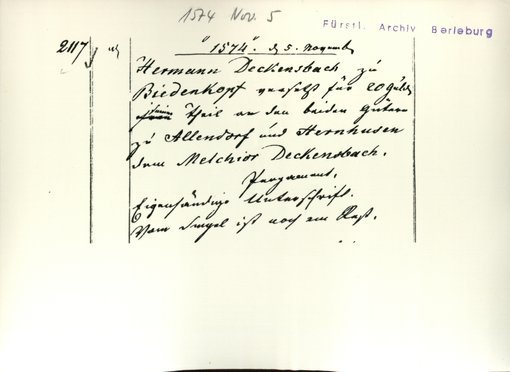 1574 Nov. 5
Fürstl. Archiv Berleburg
2117
"1574". d 5. November
Hermann Deckensbach zu
Biedenkopf versetzt für 20 Gulden
seinen Theil an den beiden Gütern
zu Allendorf und Hernhusen
dem Melchior Deckensbach.
Pergament.
Eigenhändige Unterschrift.
Vom Siegel ist noch ein Rest.